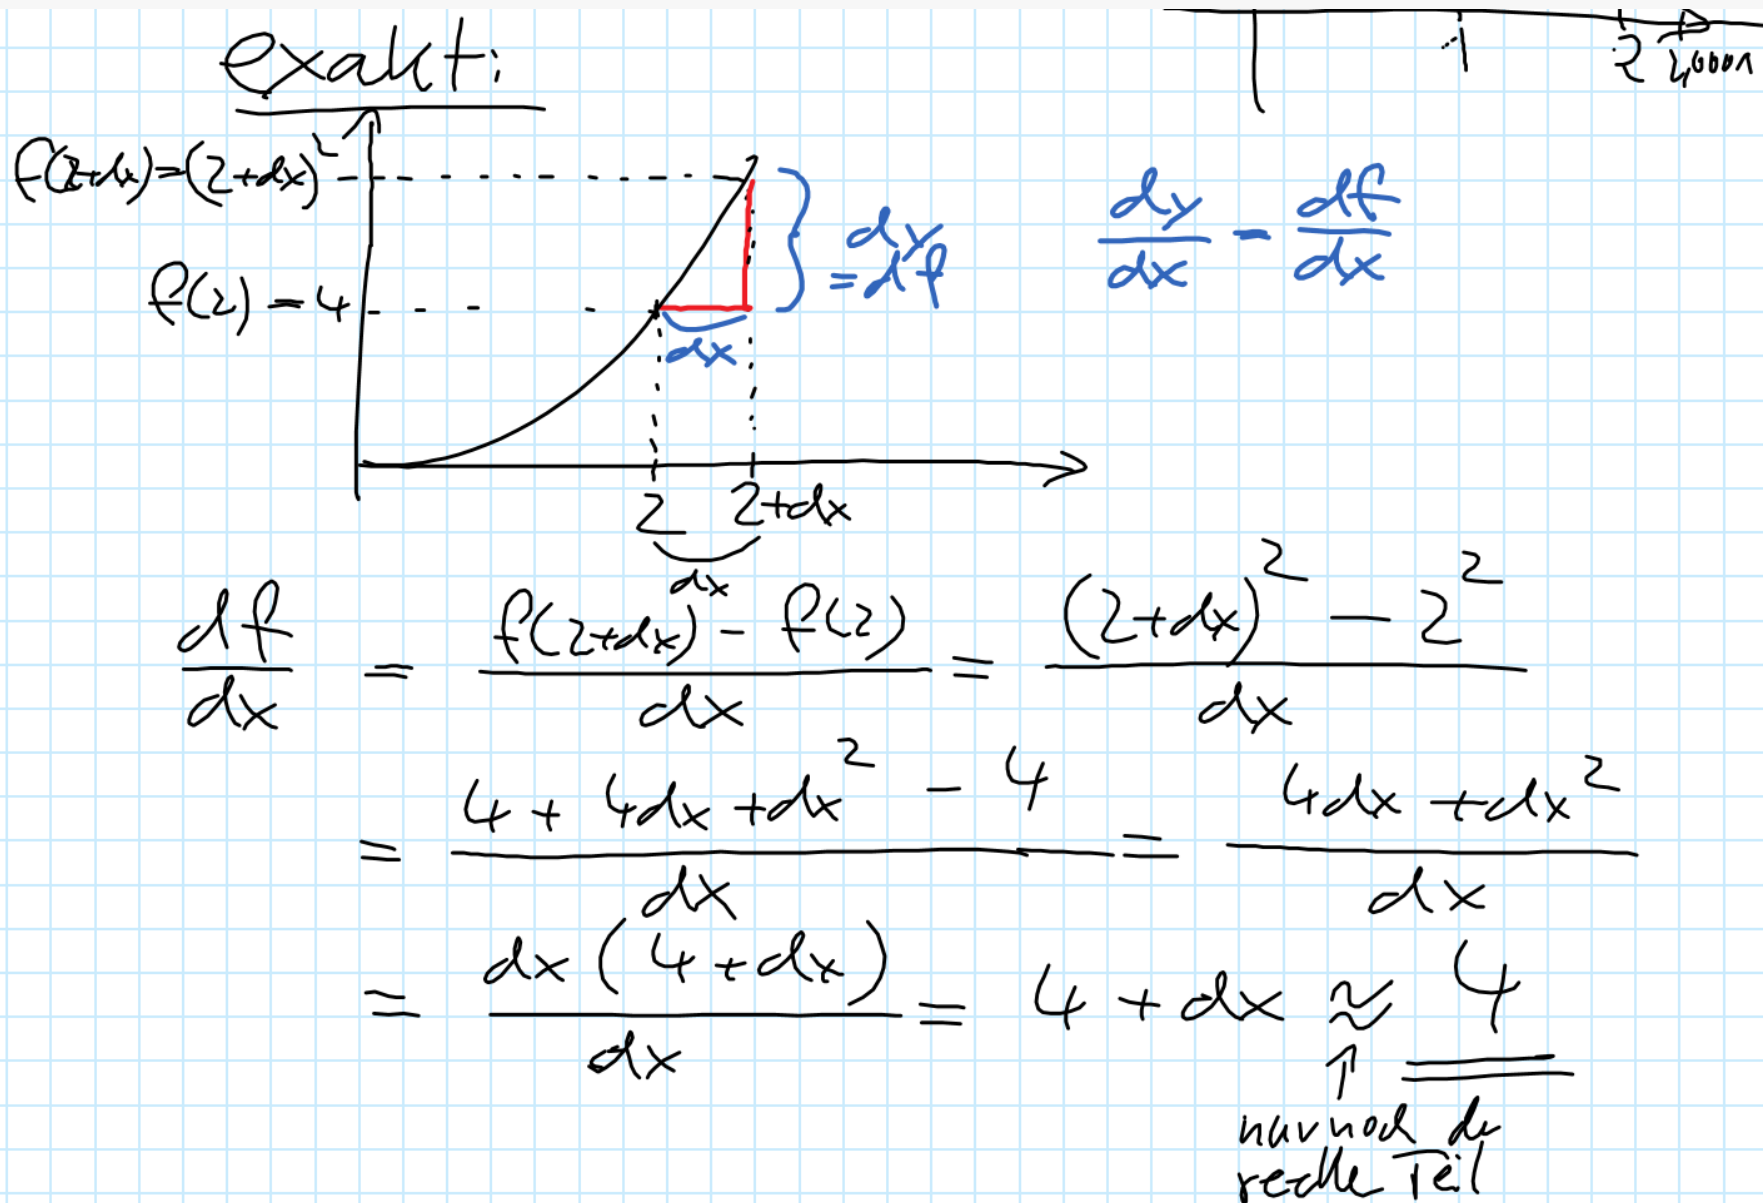 exakt:
1 2 2,0001
f(2+dx)=(2+dx)²
f(2)=4
dx
dy
=df
dy/dx = df/dx
2 2+dx
dx
df/dx = (f(2+dx) - f(2))/dx = ((2+dx)² - 2²)/dx
= (4 + 4dx + dx² - 4)/dx = (4dx + dx²)/dx
= dx(4+dx)/dx = 4 + dx ≈ 4
↑
nur noch de
reelle Teil